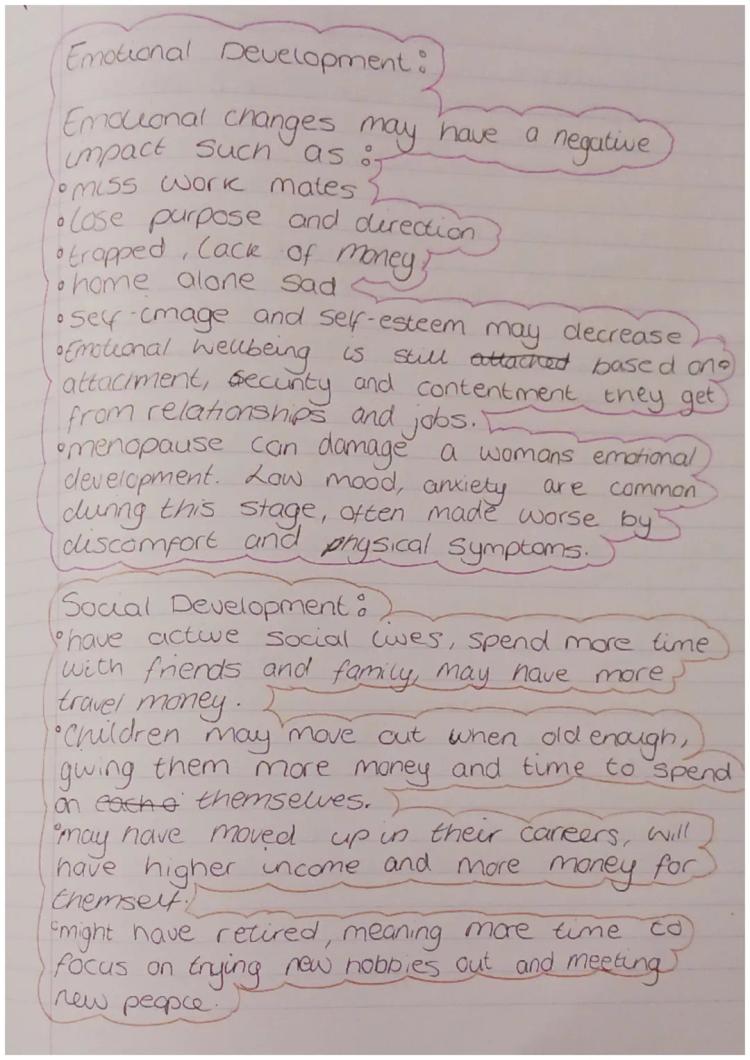 Emotional Development:
Emotional changes may have a negative
impact such as:
• miss work mates
• lose purpose and direction
• trapped, lack of money
• home alone sad
• self-image and self-esteem may decrease
• Emotional wellbeing is still attached based on
attachment, security and contentment they get
from relationships and jobs.
• menopause can damage a womans emotional
development. Low mood, anxiety are common
during this stage, often made worse by
discomfort and physical symptoms.
Social Development:
• have active social lives, spend more time
with friends and family, may have more
travel money.
• Children may move out when old enough,
giving them more money and time to spend
on themselves.
• may have moved up in their careers, will
have higher income and more money for
themself.
• might have retired, meaning more time to
focus on trying new hobbies out and meeting
new people.